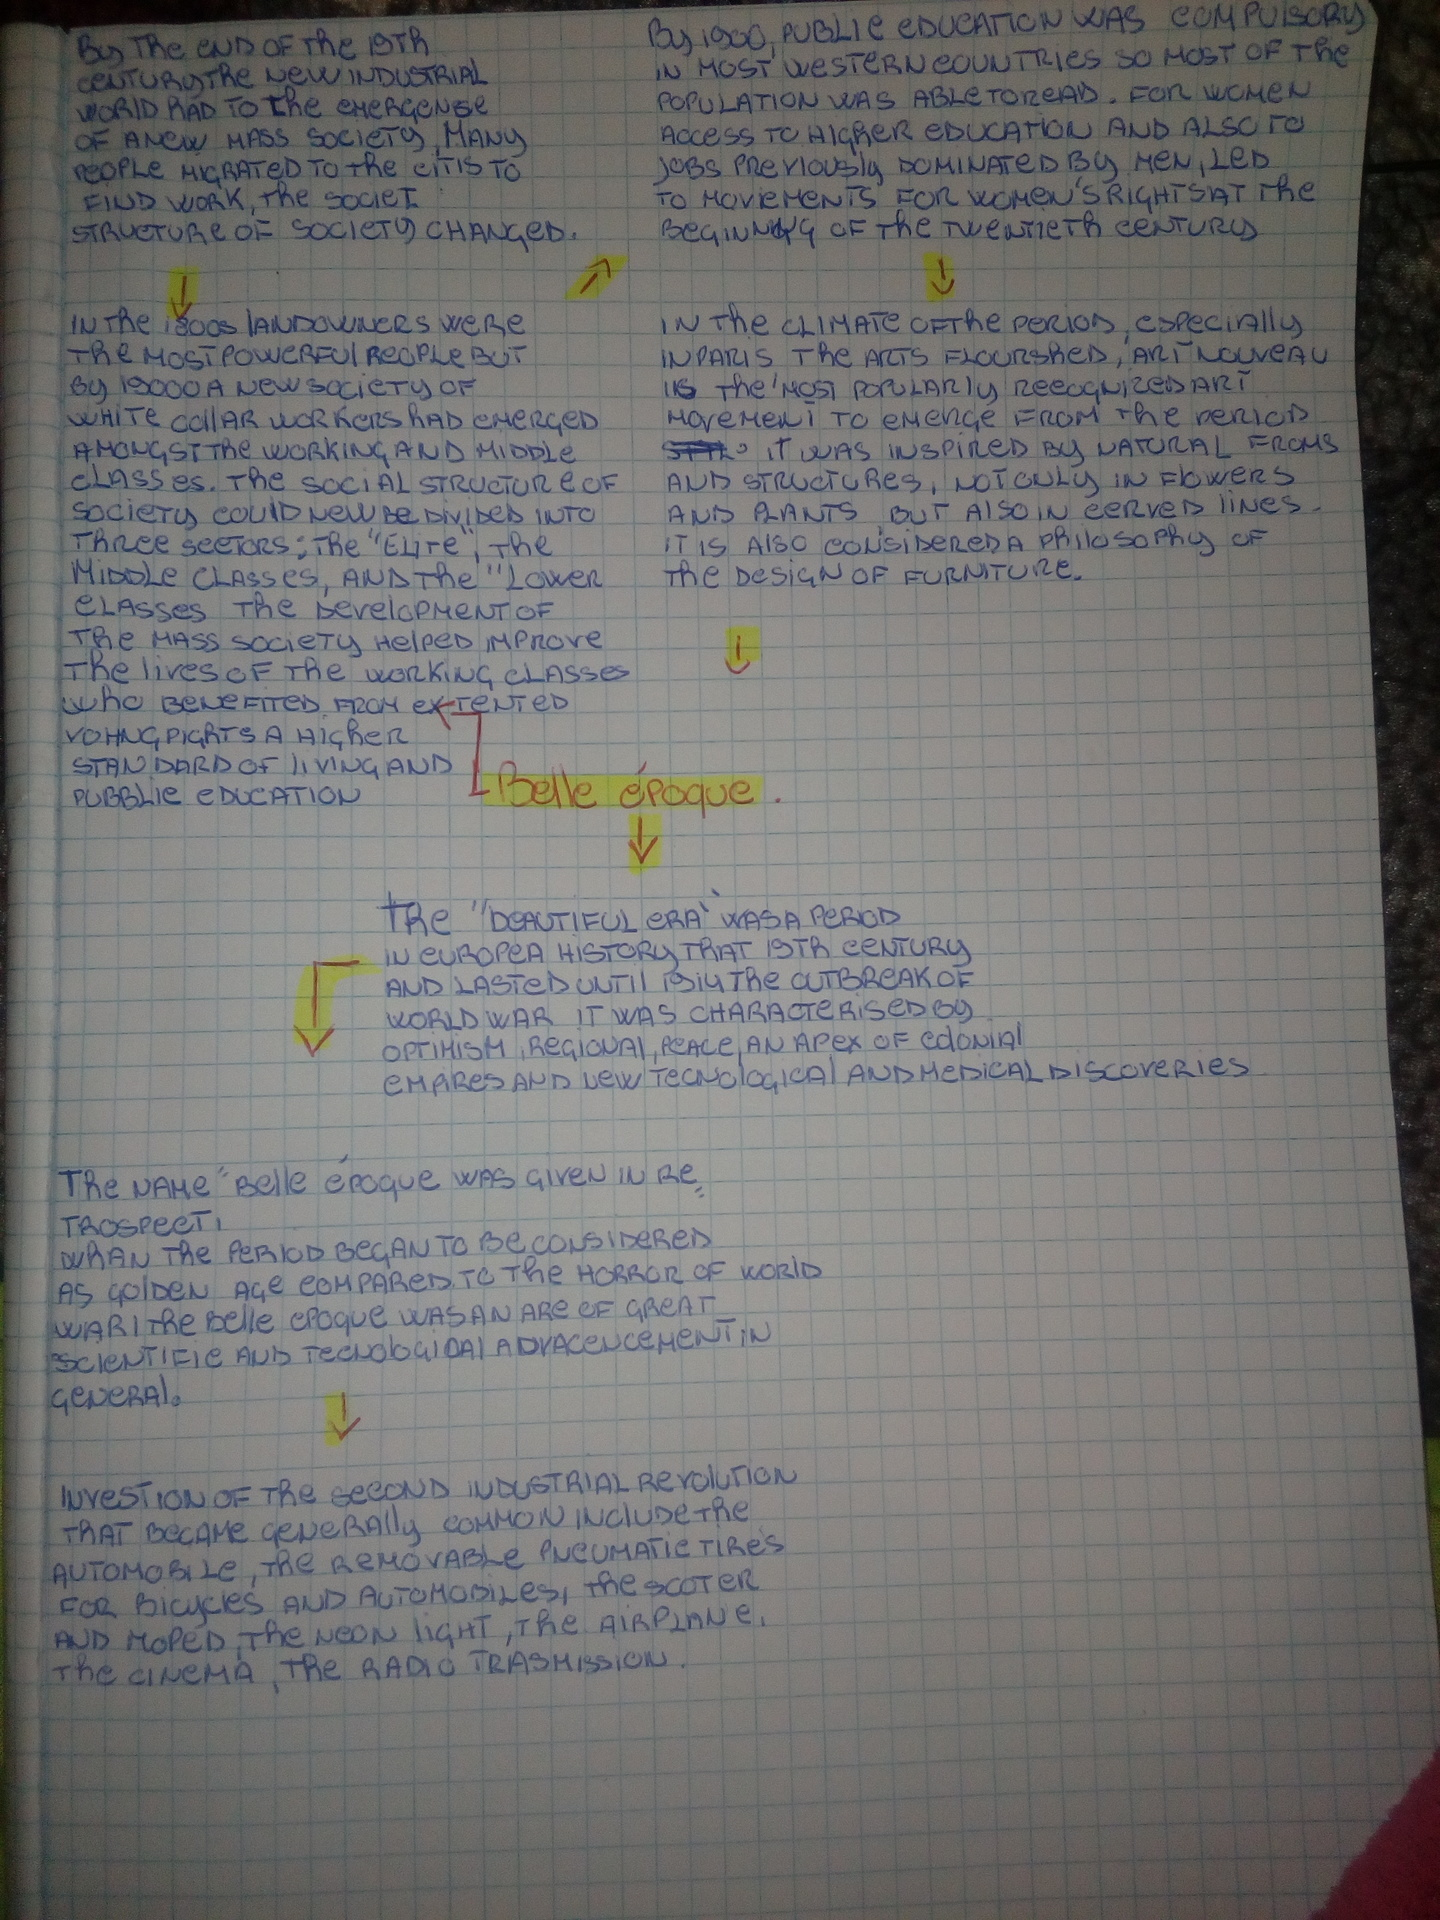 By THE END OF THE 19TH
CENTURY,THE NEW INDUSTRIAL
WORLD HAD TO THE EMERGENSE
OF A NEW MASS SOCIETY, MANY
PEOPLE MIGRATED TO THE CITIS TO
FIND WORK, THE SOCIET
STRUCTURE OF SOCIETY CHANGED.
IN THE 1800s LANDOWNERS WERE
THE MOST POWERFUL PEOPLE BUT
By 19000 A NEW SOCIETY OF
WHITE COLLAR WORKERS HAD EMERGED
AMONGST THE WORKING AND MIDDLE
CLASSES. THE SOCIAL STRUCTURE OF
SOCIETY COULD NEW BE DIVIDED INTO
THREE SECTORS; THE "ELITE", THE
MIDDLE CLASSES, AND THE "LOWER
CLASSES THE DEVELOPMENT OF
THE MASS SOCIETY HELPED IMPROVE
THE LIVES OF THE WORKING CLASSES
WHO BENEFITED FROM EXTENTED
VOHNG PIGHTS A HIGHER
STANDARD OF LIVING AND
PUBBLIC EDUCATION
By 1900, PUBLIC EDUCATION WAS COMPULSORY
IN MOST WESTERN COUNTRIES SO MOST OF THE
POPULATION WAS ABLE TO READ. FOR WOMEN
ACCESS TO HIGHER EDUCATION AND ALSO TO
JOBS PREVIOUSLY DOMINATED BY MEN, LED
TO MOVIEMENTS FOR WOMEN'S RIGHTS AT THE
BEGINNING OF THE TWENTIETH CENTURY
IN THE CLIMATE OF THE PERIOD, ESPECIALLY
IN PARIS THE ARTS FLOURSHED, ART NOUVEAU
IS THE MOST POPULARLY RECOGNIZED ART
MOVEMENT TO EMERGE FROM THE PERIOD
IT WAS INSPIRED BY NATURAL FROMS
AND STRUCTURES, NOT ONLY IN FLOWERS
AND PLANTS BUT ALSO IN CERVED LINES.
IT IS ALSO CONSIDERED A PHILOSOPHY OF
THE DESIGN OF FURNITURE.
Belle époque.
THE "BEAUTIFUL ERA" WAS A PERIOD
IN EUROPEA HISTORY THAT 19TH CENTURY
AND LASTED UNTIL 1914 THE OUTBREAK OF
WORLD WAR IT WAS CHARACTERISED BY
OPTIMISM, REGIONAL, PEACE, AN APEX OF COLONIAL
EMPIRES AND NEW TECNOLOGICAL AND MEDICAL DISCOVERIES
THE NAME "BELLE ÉPOQUE WAS GIVEN IN RE=
TROSPECT,
WHAN THE PERIOD BEGAN TO BE CONSIDERED
AS GOLDEN AGE COMPARED TO THE HORROR OF WORLD
WAR I THE BELLE EPOQUE WAS AN ARE OF GREAT
SCIENTIFIC AND TECNOLOGICAL ADVACENCEMENT IN
GENERAL.
INVESTION OF THE SECOND INDUSTRIAL REVOLUTION
THAT BECAME GENERALLY COMMON INCLUDE THE
AUTOMOBILE, THE REMOVABLE PNEUMATIC TIRES
FOR BICYCLES AND AUTOMOBILES, THE SCOTER
AND MOPED, THE NEON LIGHT, THE AIRPLANE,
THE CINEMA, THE RADIO TRASMISSION.